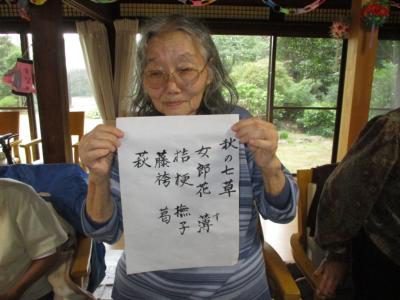 秋の七草
女郎花 薄 す
桔梗 撫子
藤袴 葛
萩